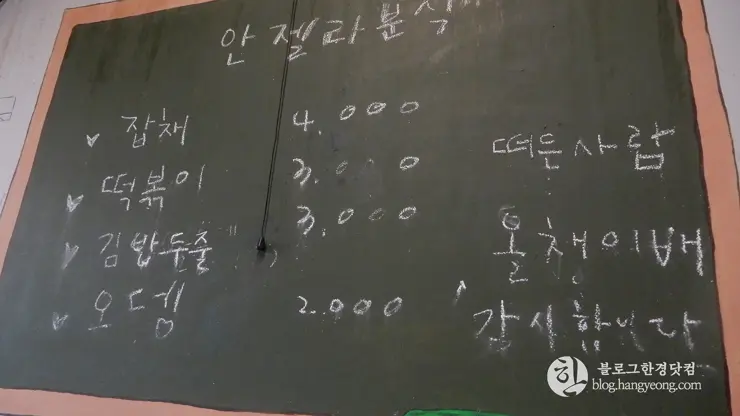 안젤라분식
잡채 4.000
떡볶이 3.000
김밥두줄 3.000
오뎅 2.000
떠든사람
올챙이배
감사합니다
블로그한경닷컴
blog.hangyeong.com